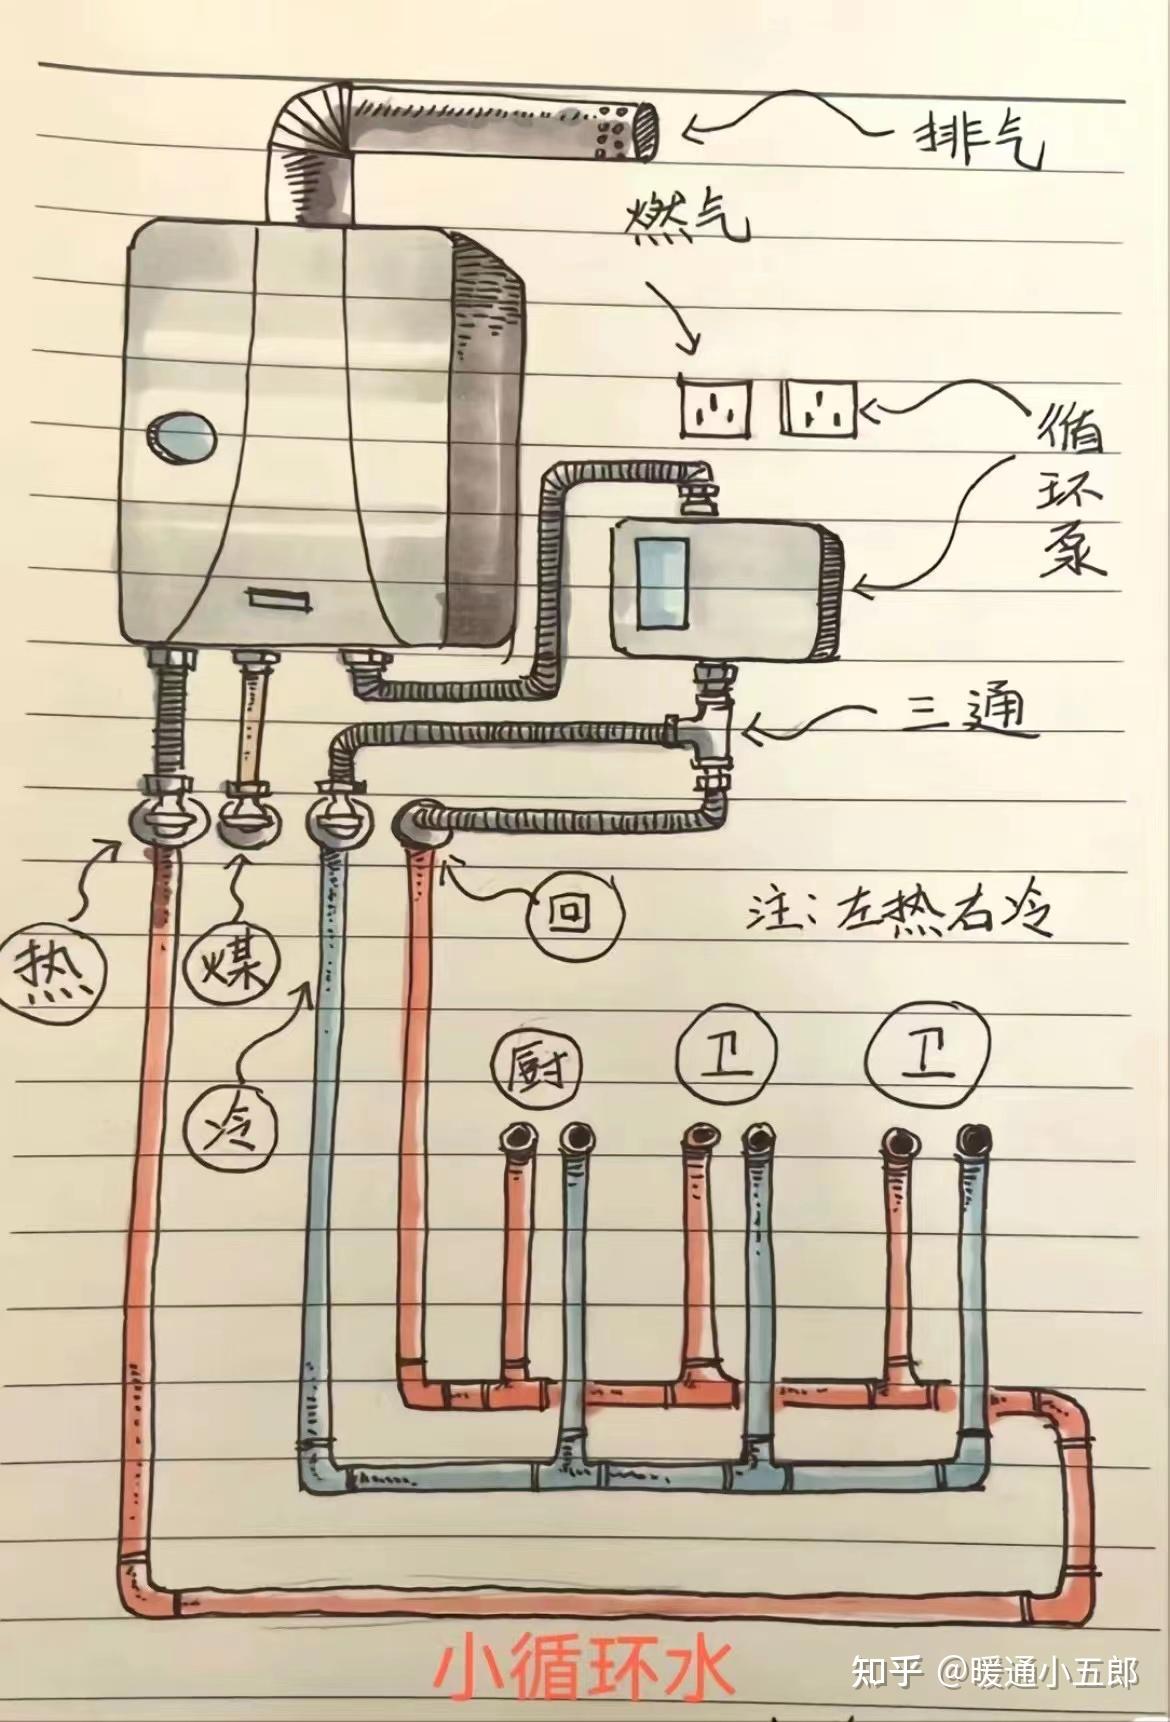 排气
燃气
循环泵
三通
回
注：左热右冷
热
煤
冷
厨
卫
卫
小循环水
知乎 @暖通小五郎